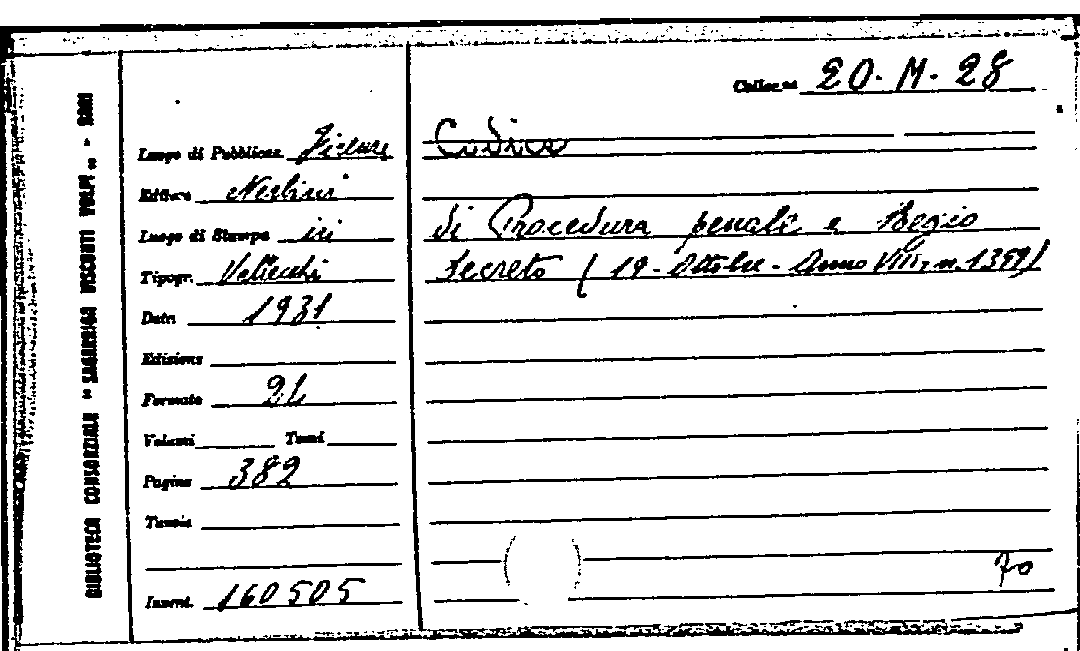 BIBLIOTECA CONSORZIALE "SAGARRIGA VISCONTI VOLPI" - BARI
Colloc.ne 20. M. 28
Luogo di Pubblicaz. Firenze
Editore Nerbini
Luogo di Stampa ivi
Tipogr. Vallecchi
Data 1931
Edizione
Formato
Volumi Tomi
Pagine 382
Tavole
Invent. 160505
Codice
di Procedura penale e Regio
decreto (19 - Ottobre - Anno VIII, n. 1399)
70